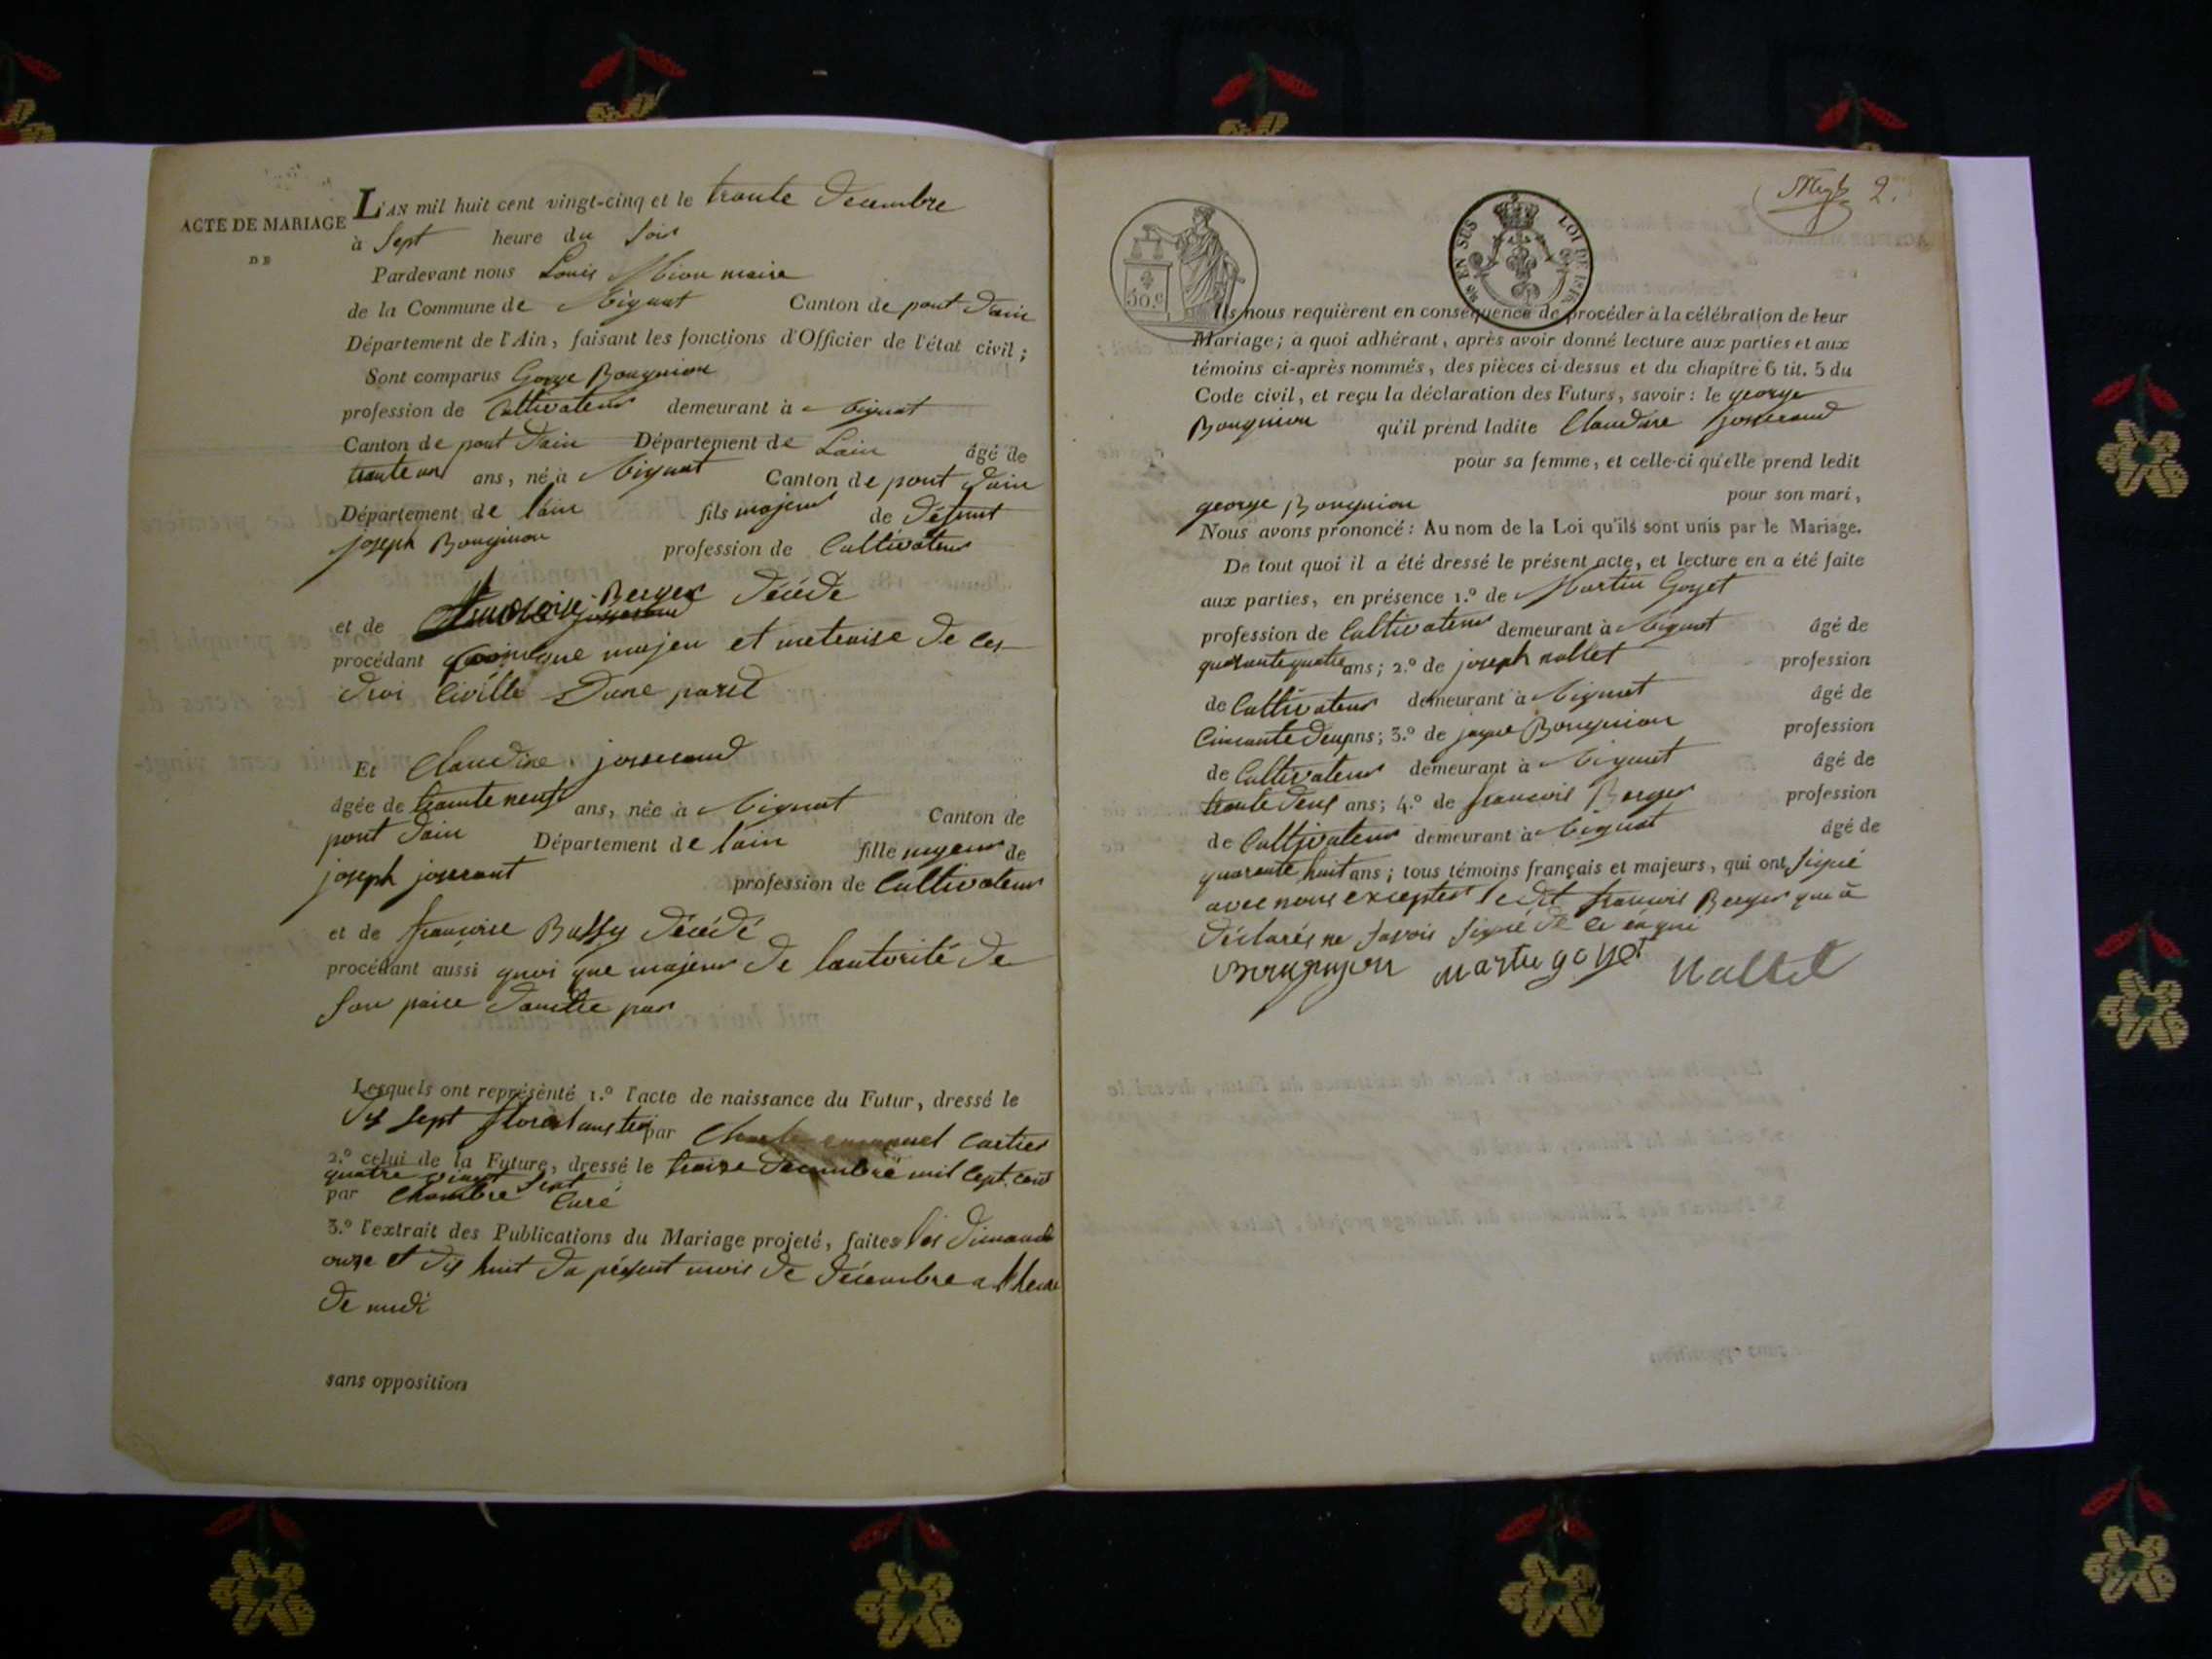 ACTE DE MARIAGE
DE
L'AN mil huit cent vingt-cinq et le trante Decembre
à Sept heure du Soir
Pardevant nous Louis maire
de la Commune de Canton de pont Dain
Département de l'Ain, faisant les fonctions d'Officier de l'état civil;
Sont comparus Gorge Bougnion
profession de Cultivateur demeurant à
Canton de pont Dain Département de Lain âgé de
trante un ans, né à Canton de pont Dain
Département de lain fils majeur de Défunt
joseph Bougnion profession de Cultivateur
et de Berger Décéde
procédant que majeu et metraise De ces
Droi Civille Dune part
Et Claudine josserand
âgée de trante neuf ans, née à Canton de
pont Dain Département de lain fille majeur de
joseph josserant profession de Cultivateur
et de francoise Buffy Décédé
procédant aussi quoi que majeur De lautorité De
Son paire Dauttre par
Lesquels ont représenté 1.º l'acte de naissance du Futur, dressé le
Dix Sept par Cartier
2.º celui de la Future, dressé le traize Decembre mil Sept cent
quatre vingt Sept
par Chambre Curé
3.º l'extrait des Publications du Mariage projeté, faites les Dimanch
onze et Dix huit Du présent mois De Décembre a lheure
De midi
sans opposition
2.
50.c
EN SUS LOI DE 1816
Ils nous requièrent en conséquence de procéder à la célébration de leur
Mariage; à quoi adhérant, après avoir donné lecture aux parties et aux
témoins ci-après nommés, des pièces ci-dessus et du chapitre 6 tit. 5 du
Code civil, et reçu la déclaration des Futurs, savoir: le george
Bougnion qu'il prend ladite Claudine josserand
pour sa femme, et celle-ci qu'elle prend ledit
george Bougnion pour son mari,
Nous avons prononcé: Au nom de la Loi qu'ils sont unis par le Mariage.
De tout quoi il a été dressé le présent acte, et lecture en a été faite
aux parties, en présence 1.º de Martin Goyet
profession de Cultivateur demeurant à âgé de
quarante quatre ans; 2.º de joseph nallet profession
de Cultivateur demeurant à âgé de
Cincante Deux ans; 3.º de jaque Bougnion profession
de Cultivateur demeurant à âgé de
trante Deux ans; 4.º de francois Berger profession
de Cultivateur demeurant à âgé de
quarante huit ans; tous témoins français et majeurs, qui ont Signé
avec nous excepter ledit francois Berger que à
Déclarés ne Savoir Signé De ce enqui
Bougnion martin goyet Nallet